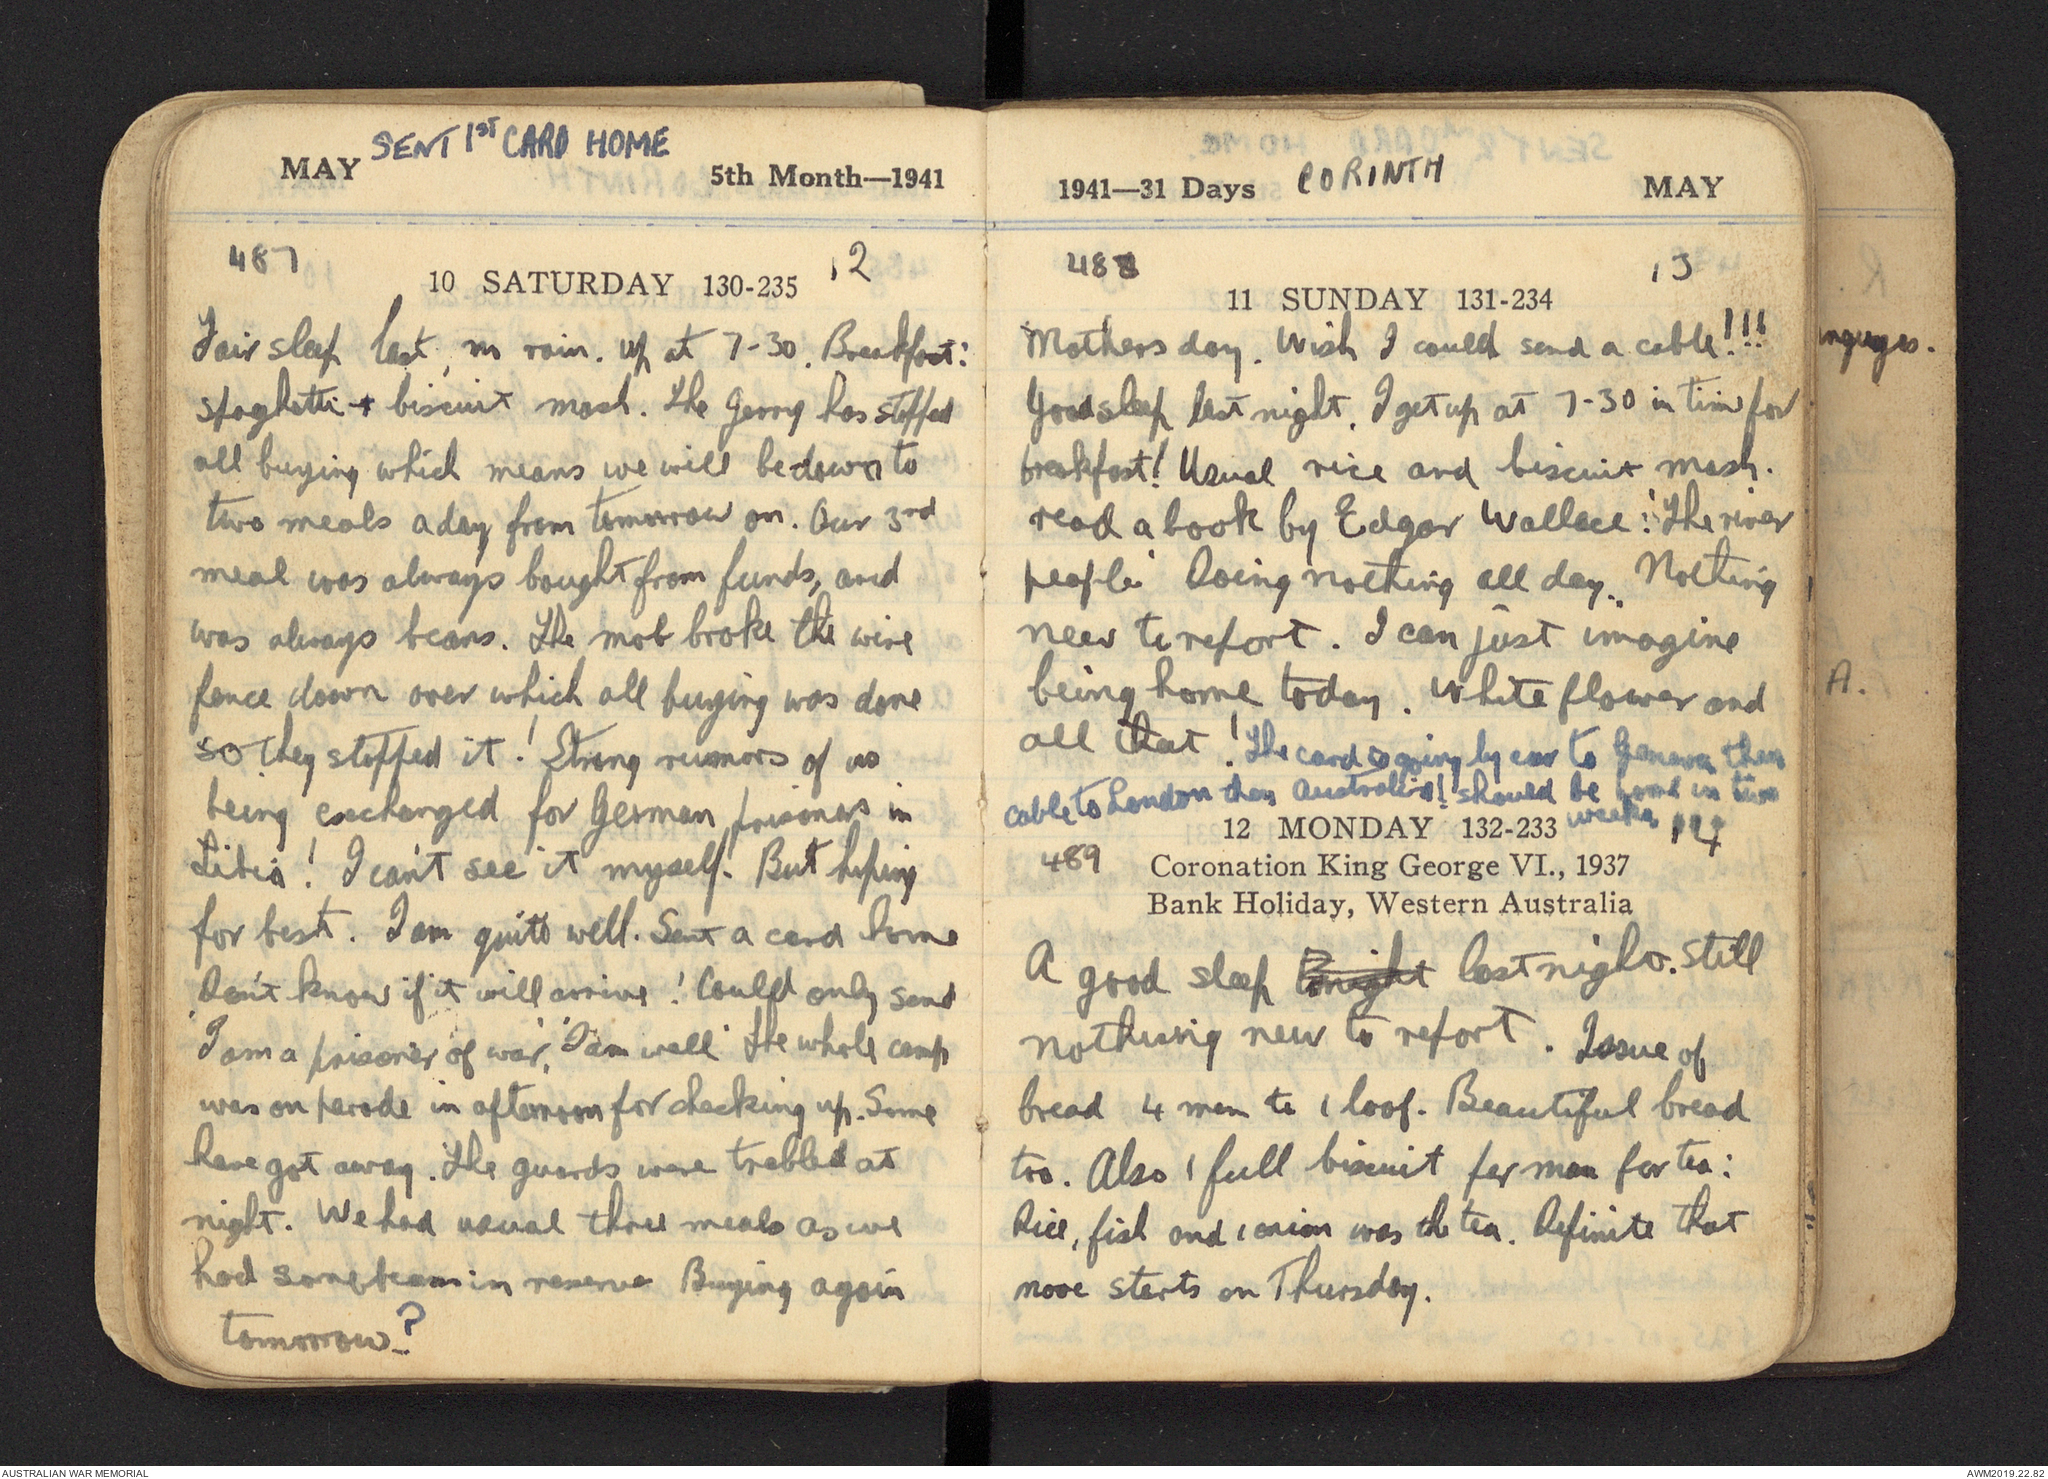 SENT 1ST CARD HOME
MAY 5th Month—1941
487 12
10 SATURDAY 130-235
Fair sleep last, no rain. up at 7-30. Breakfast:
spaghetti + biscuit mash. The Gerry has stopped
all buying which means we will be down to
two meals a day from tomorrow on. Our 3rd
meal was always bought from funds, and
was always beans. The mob broke the wire
fence down over which all buying was done
so they stopped it! Strong rumors of us
being exchanged for German prisoners in
Libia! I can't see it myself. But hoping
for best. I am quite well. Sent a card home
Don't know if it will arrive! Could only send
'I am a prisoner of war,' 'I am well' The whole camp
was on parade in afternoon for checking up. Some
have got away. The guards were trebled at
night. We had usual three meals as we
had some beans in reserve Buying again
tomorrow?
1941—31 Days CORINTH MAY
488 13
11 SUNDAY 131-234
Mothers day. Wish I could send a cable!!!
Good sleep last night. I get up at 7-30 in time for
breakfast! Usual rice and biscuit mash.
read a book by Edgar Wallace: "The river
people" Doing nothing all day. Nothing
new to report. I can just imagine
being home today. White flower and
all that! The card is going by car to Geneva then
cable to London then Australia! should be home in two
weeks
12 MONDAY 132-233 14
489 Coronation King George VI., 1937
Bank Holiday, Western Australia
A good sleep last night. Still
nothing new to report. Issue of
bread 4 men to 1 loaf. Beautiful bread
too. Also 1 full biscuit per man for tea:
Rice, fish and 1 onion was the tea. Definite that
move starts on Thursday.
nguages.
A.
R.
AUSTRALIAN WAR MEMORIAL AWM2019.22.82